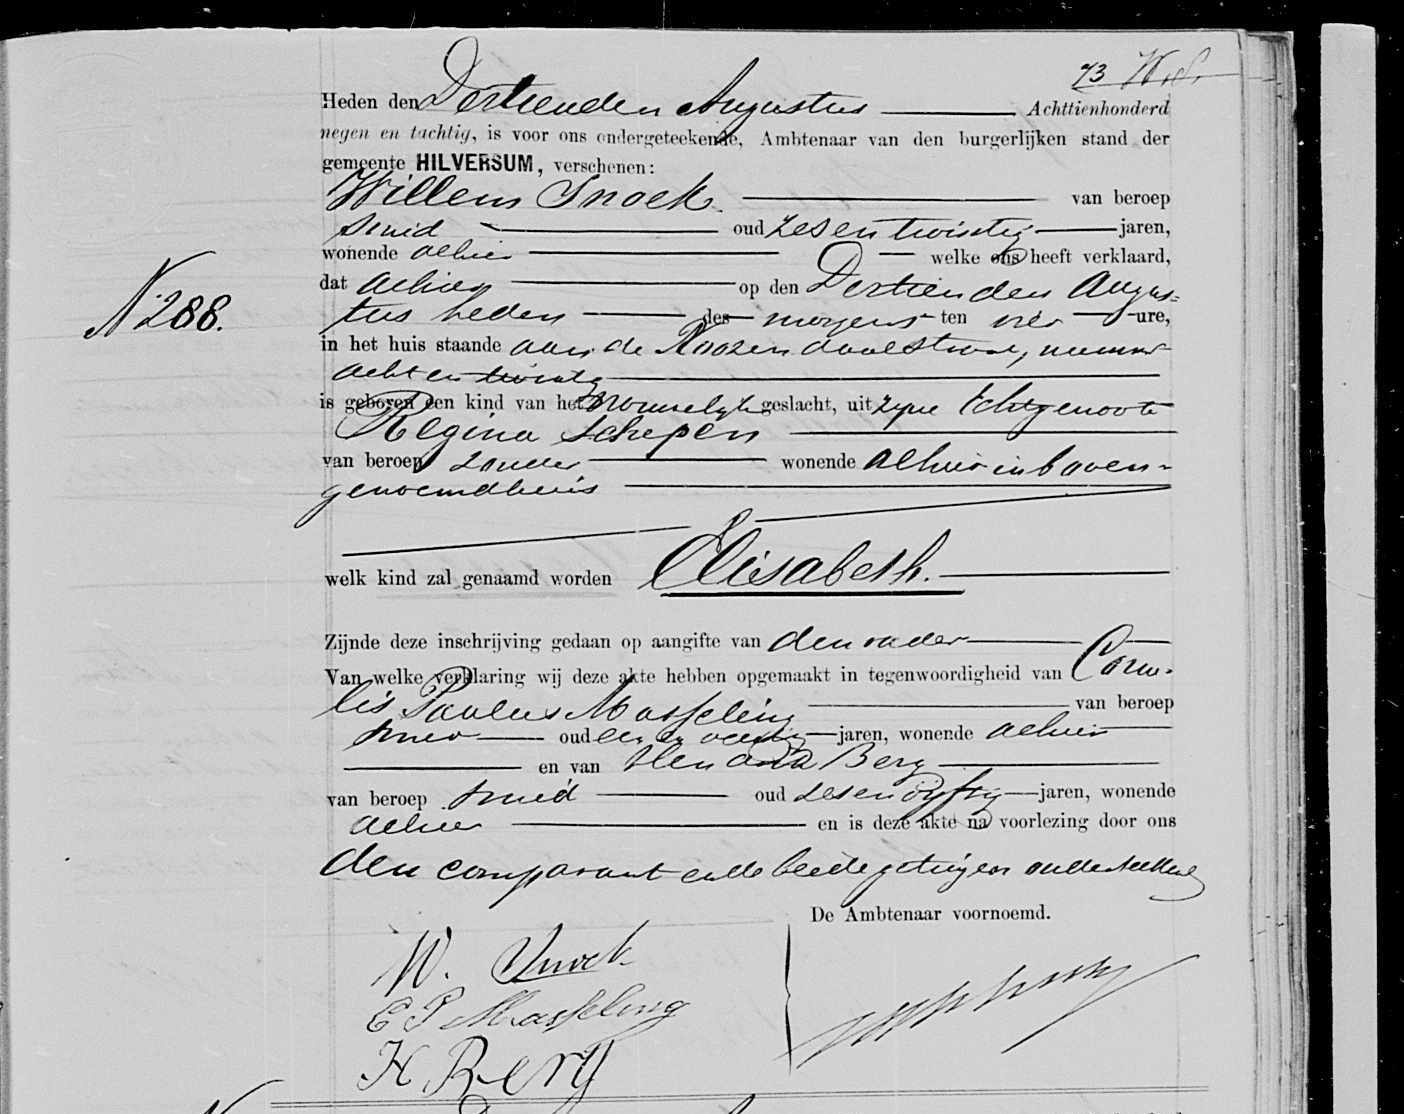 73
Heden den Dertienden Augustus Achttienhonderd
negen en tachtig, is voor ons ondergeteekende, Ambtenaar van den burgerlijken stand der
gemeente HILVERSUM, verschenen:
Willem Snoek van beroep
smid oud zes en twintig jaren,
wonende alhier welke ons heeft verklaard,
dat alhier op den Dertienden Augus=
N 288.
tus heden des morgens ten vier ure,
in het huis staande aan de Roozendaalstraat, nummer
acht en twintig
is geboren een kind van het Vrouwelijk geslacht, uit zijne Echtgenoote
Regina Schepen
van beroep zonder wonende alhier in boven-
genoemd huis
welk kind zal genaamd worden Elisabeth.
Zijnde deze inschrijving gedaan op aangifte van den vader
Van welke verklaring wij deze akte hebben opgemaakt in tegenwoordigheid van Corne-
lis Paulus Masseling van beroep
smid oud en veertig jaren, wonende alhier
en van Hendrik Berg
van beroep smid oud zes en vijftig jaren, wonende
alhier en is deze akte na voorlezing door ons
den comparant en de beide getuigen onderteekend
De Ambtenaar voornoemd.
W. Snoek
C P Masseling
H Berg